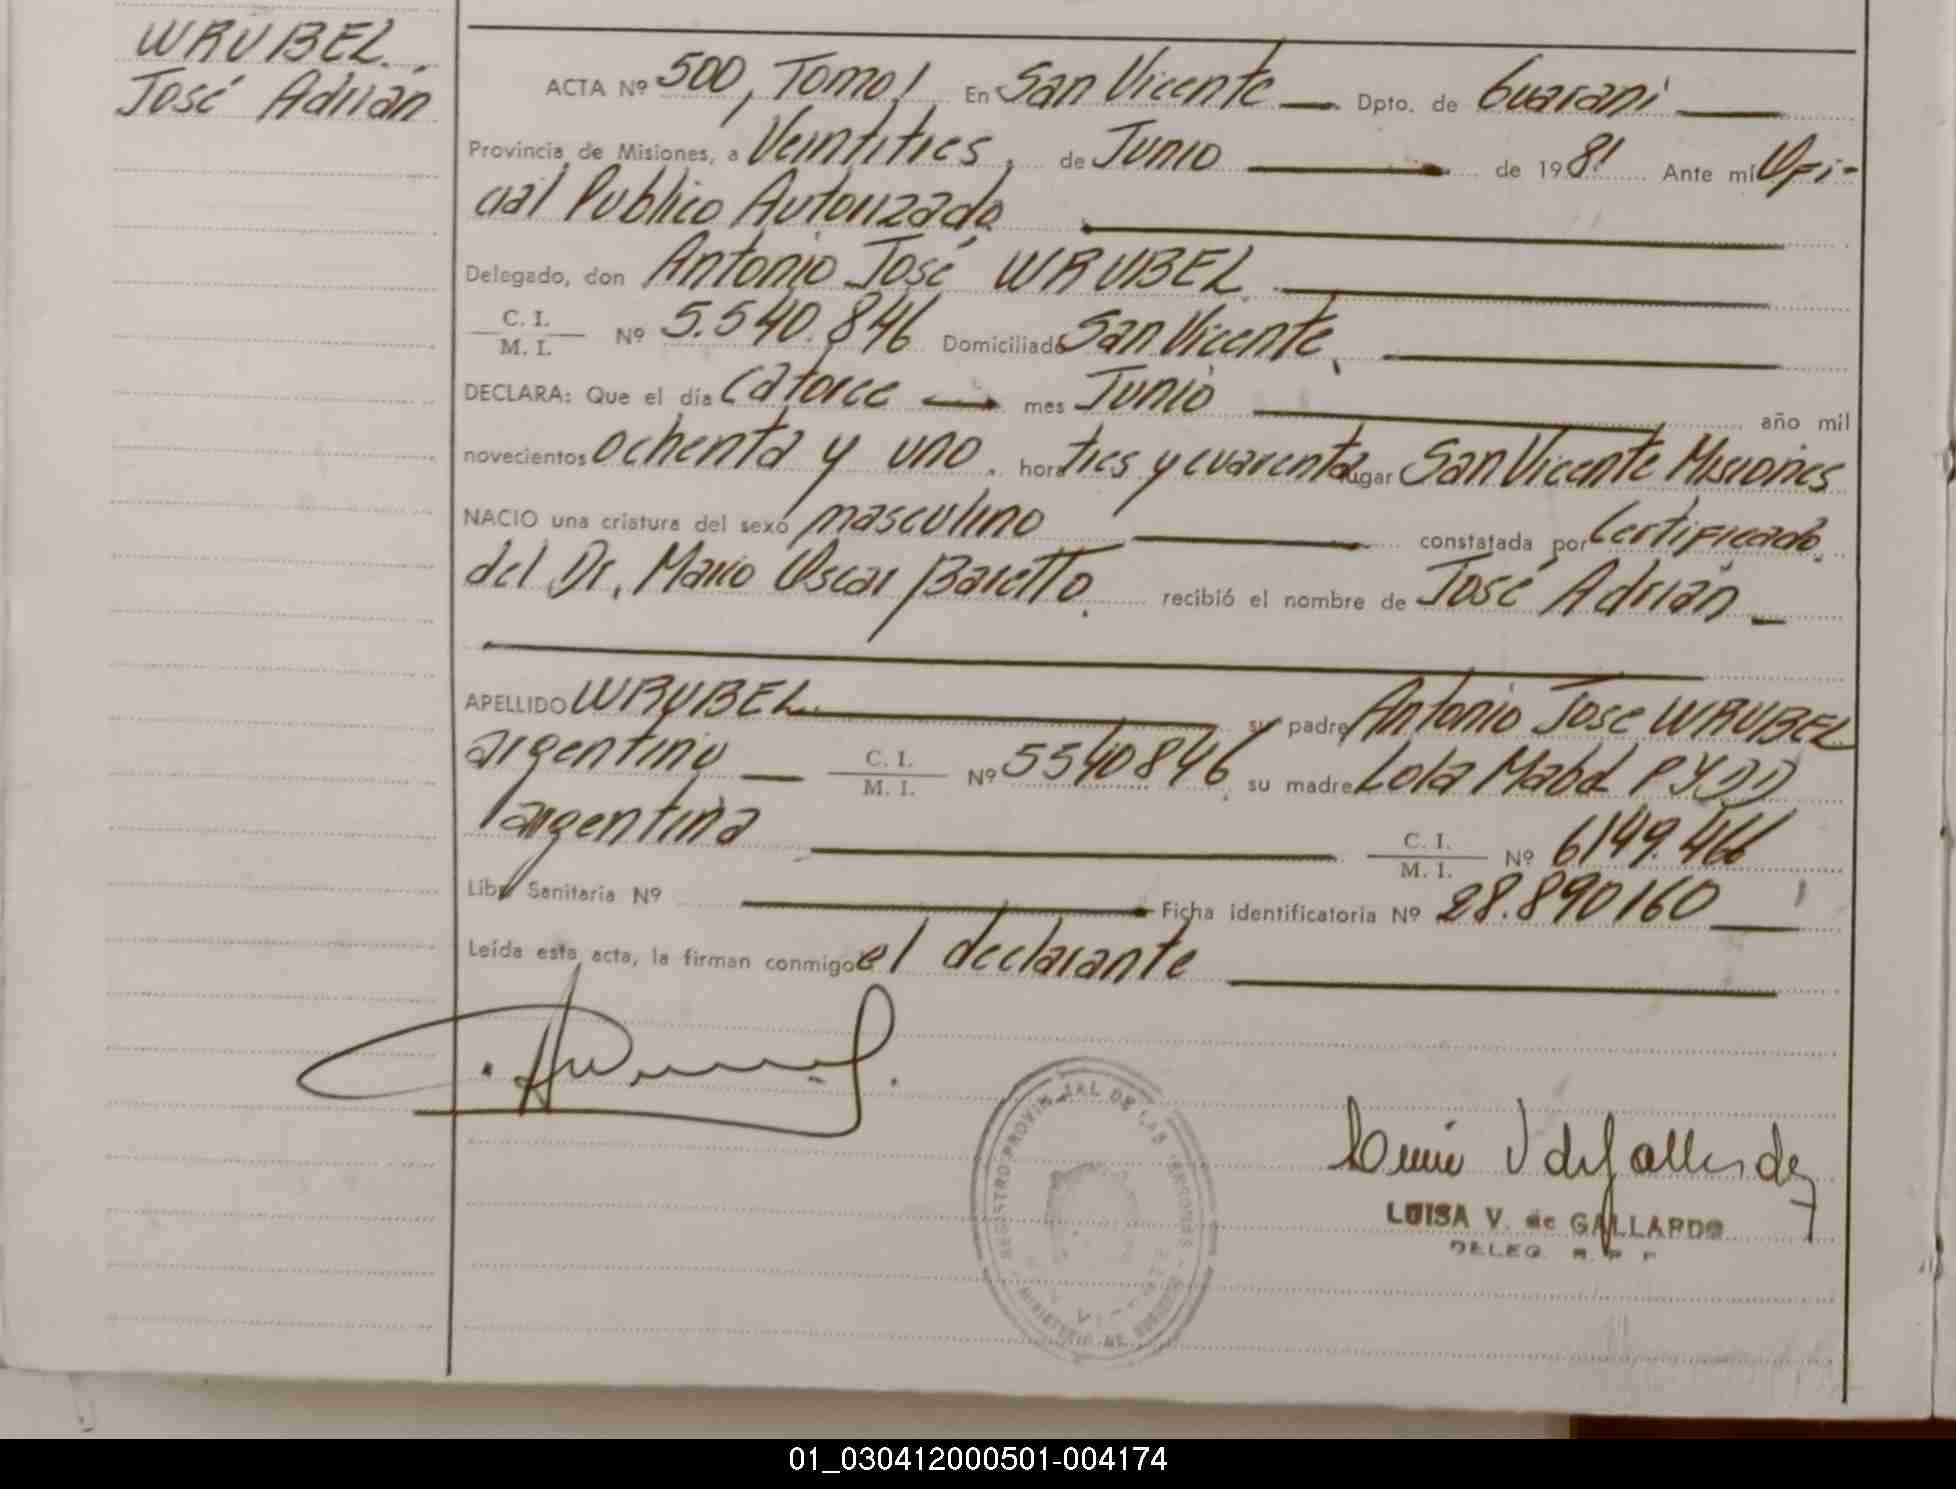 WRUBEL.
José Adrián
ACTA Nº 500, Tomo I En San Vicente Dpto. de Guaraní
Provincia de Misiones, a Veintitres, de Junio de 1981 Ante mí Ofi-
cial Publico Autorizado
Delegado, don Antonio José WRUBEL.
C. I.
M. I. Nº 5.540.846 Domiciliado San Vicente,
DECLARA: Que el día Catorce mes Junio año mil
novecientos ochenta y uno. hora tres y cuarenta lugar San Vicente Misiones
NACIO una criatura del sexo masculino constatada por Certificado
del Dr. Mario Oscar Baretto. recibió el nombre de José Adrián
APELLIDO WRUBEL su padre Antonio José WRUBEL
argentino C. I.
M. I. Nº 5540846, su madre Lola Mabel
argentina C. I.
M. I. Nº 6149.466
Libr Sanitaria Nº Ficha identificatoria Nº 28.890160
Leída esta acta, la firman conmigo el declarante
REGISTRO PROVINCIAL DE LAS PERSONAS
MINISTERIO DE GOBIERNO
LUISA V. de GALLARDO
DELEG. R. P. P.
01_030412000501-004174